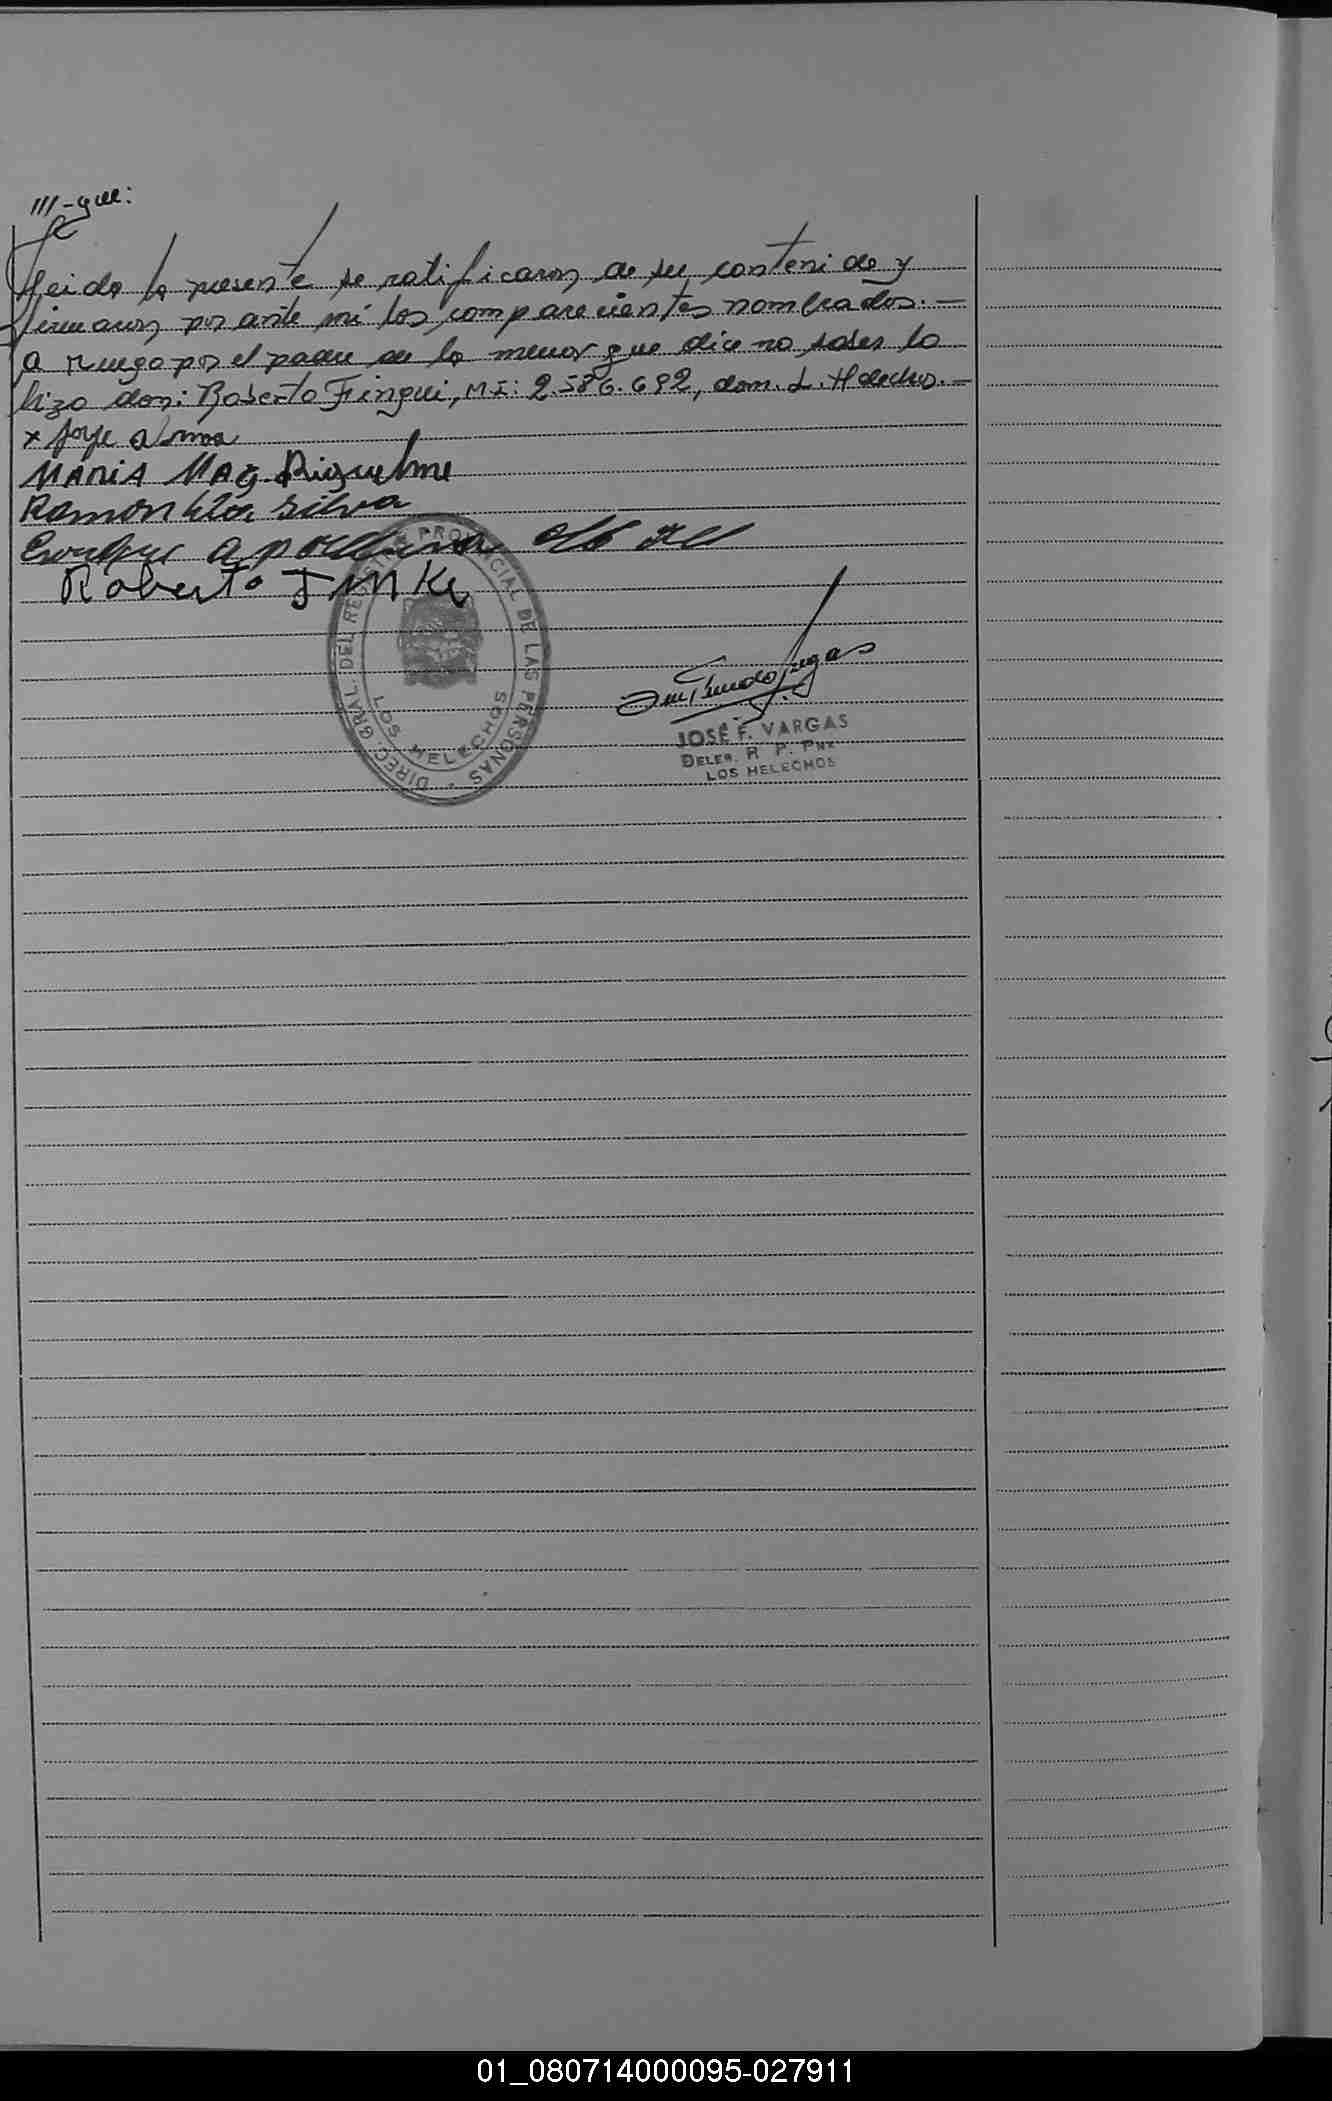 ///-gue:
Leida la presente se ratificaron de su contenido y
firmaron por ante mi los comparecientes nombrados.-
a ruego por el padre de la menor que dice no saber lo
hizo don: Roberto Finqui, M.I: 2.586.692, dom. L. Helechos.-
x Jorge
MARIA MAG. Riquelme
Ramon Silva
Roberto
DIREC. GRAL. DEL REGISTRO PROVINCIAL DE LAS PERSONAS
LOS HELECHOS
JOSÉ F. VARGAS
DELEG. R. P.
LOS HELECHOS
01_080714000095-027911